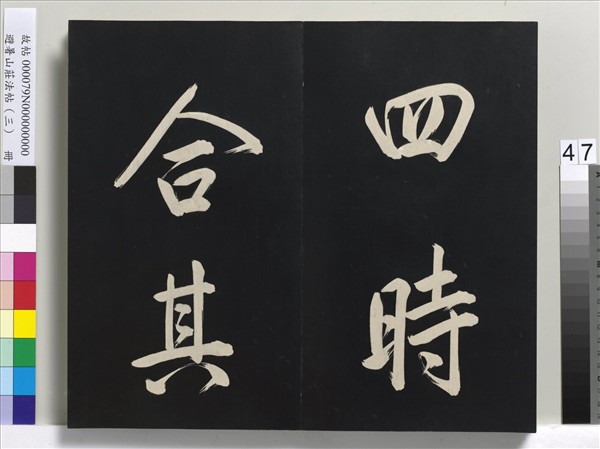 四時
合其
故帖 000079N000000000
避暑山莊法帖（三） 冊
47